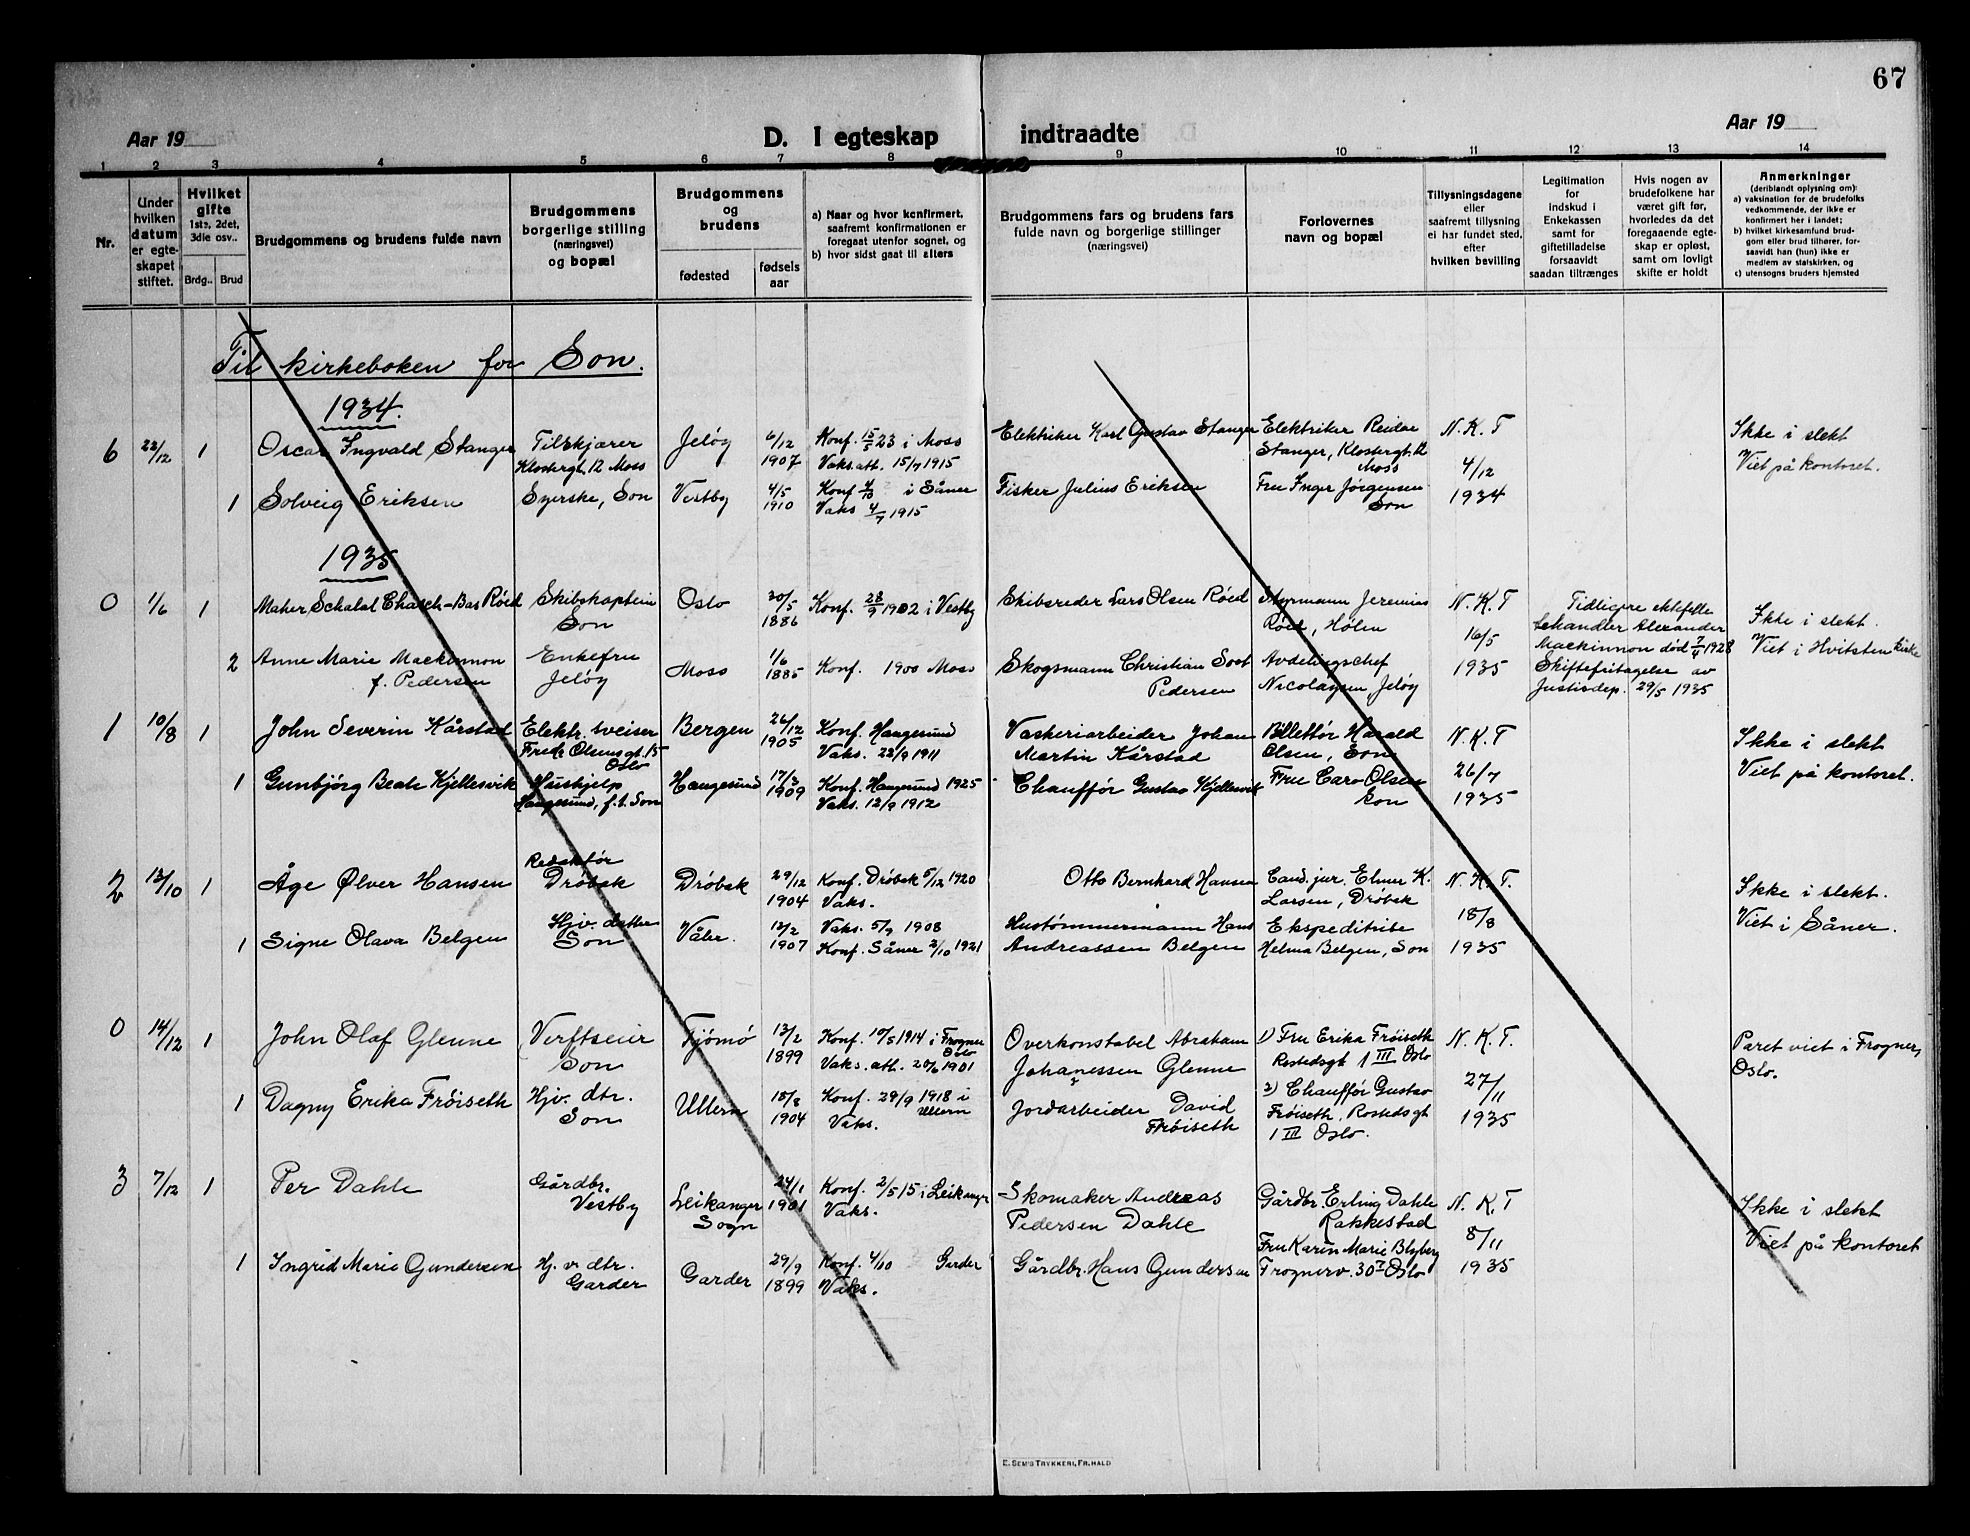 67
Aar 19
D. I egteskap indtraadte
Aar 19
1 2 3 4 5 6 7 8 9 10 11 12 13 14
Nr.
Under
hvilken
datum
er egte-
skapet
stiftet.
Hvilket
gifte
1ste, 2det,
3die osv..
Brdg.. Brud
Brudgommens og brudens fulde navn
Brudgommens
borgerlige stilling
(næringsvei)
og bopæl
Brudgommens
og
brudens
fødested
fødsels
aar
a) Naar og hvor konfirmert,
saafremt konfirmationen er
foregaat utenfor sognet, og
b) hvor sidst gaat til alters
Brudgommens fars og brudens fars
fulde navn og borgerlige stillinger
(næringsvei)
Forlovernes
navn og bopæl
Tillysningsdagene
eller
saafremt tillysning
ei har fundet sted,
efter
hvilken bevilling
Legitimation
for
indskud i
Enkekassen
samt for
giftetilladelse
forsaavidt
saadan tiltrænges
Hvis nogen av
brudefolkene har
været gift før,
hvorledes da det
foregaaende egte-
skap er opløst,
samt om lovligt
skifte er holdt
Anmerkninger
(deriblandt oplysning om):
a) vaksination for de brudefolks
vedkommende, der ikke er
konfirmert her i landet;
b) hvilket kirkesamfund brud-
gom eller brud tilhører, for-
saavidt han (hun) ikke er
medlem av statskirken, og
c) utensogns bruders hjemsted
Til kirkeboken for Son.
1934.
6 22/12 1 Oscar Ingvald Stanger
Tilskjærer
Klostergt. 12 Moss
Jeløy
6/12
1907
Konf. 15/5 23 i Moss
Vaks. att. 15/7 1915
Elektriker Karl Gustav Stanger
Elektriker Reidar
Stanger, Klostergt. 12
Moss
N. K. T
4/12
1934
Ikke i slekt
Viet på kontoret.
1 Solveig Eriksen
Syerske, Son
Vestby
4/5
1910
Konf. 4/10 i Såner
Vaks 4/7 1915
Fisker Julius Eriksen
Fru Inger Jørgensen
Son
1935
0 1/6 1 Maher Schalal Chasch-Bas Røed
Skibskaptein
Son
Oslo
30/5
1886
Konf. 28/9 1902 i Vestby
Skibsreder Lars Olsen Røed
Styrmann Jeremias
Røed, Hølen
N. K. T
16/5
1935
Tidligere ektefelle
Alexander
Mackinnon død 7/4 1928
Skiftefritagelse av
Justisdep. 29/5 1935
Ikke i slekt.
Viet i Hvitsten kirke
2 Anne Marie Mackinnon
f. Pedersen
Enkefru
Jeløy
Moss
1/6
1885
Konf. 1900 Moss
Skogsmann Christian Soot
Pedersen
Avdelingschef
Nicolaysen, Jeløy
1 10/8 1 John Severin Kårstad
Elektr. sveiser
Fredr. Olsens gt. 15
Oslo
Bergen
26/12
1905
Konf. Haugesund
Vaks. 23/9 1911
Vaskeriarbeider Johan
Martin Kårstad
Billettør Harald
Olsen, Son
N. K. T
26/7
1935
Ikke i slekt
Viet på kontoret.
1 Gunbjørg Beate Kjellesvik
Huskjelp
Haugesund, f.t. Son
Haugesund
17/3
1909
Konf. Haugesund 1925
Vaks. 12/9 1912
Chauffør Gustav Kjellesvik
Fru Caro Olsen
Son
2 13/10 1 Åge Ølver Hansen
Redaktør
Drøbak
Drøbak
29/12
1904
Konf. Drøbak 5/12 1920
Vaks.
Otto Bernhard Hansen
Cand. jur. Elmer K.
Larsen, Drøbak
N. K. T.
18/8
1935
Ikke i slekt.
Viet i Såner.
1 Signe Olava Belgen
Hjv. datter
Son
Våler.
12/2
1907
Vaks. 5/9 1908
Konf. Såner 2/10 1921
Hustømmermann Hans
Andreassen Belgen
Ekspeditrise
Helma Belgen, Son
0 14/12 1 John Olaf Glenne
Verftseier
Son
Tjømø
13/2
1899
Konf. 10/5 1914 i Frogner
Oslo
Vaks. att. 20/6 1901
Overkonstabel Abraham
Johanessen Glenne
1) Fru Erika Frøiseth
Rostedsgt 1 III Oslo
N. K. T.
27/11
1935
Paret viet i Frogner,
Oslo.
1 Dagny Erika Frøiseth
Hjv. dtr.
Son
Ullern
18/8
1904
Konf. 29/9 1918 i
Ullern
Vaks.
Jordarbeider David
Frøiseth
2) Chauffør Gustav
Frøiseth, Rostedsgt
1 III Oslo.
3 7/12 1 Per Dahle
Gårdbr.
Vestby
Leikanger
Sogn
24/1
1901
Konf. 2/5 15 i Leikanger
Vaks.
Skomaker Andreas
Pedersen Dahle
Gårdbr. Erling Dahle
Rakkestad
N. K. T
8/11
1935
Ikke i slekt
Viet på kontoret
1 Ingrid Marie Gundersen
Hj. v. dtr.
Garder
Garder
29/9
1899
Konf. 4/10 Garder
Vaks.
Gårdbr. Hans Gundersen
Fru Karin Marie Blyberg
Frognerv. 30 Oslo
E. SEM'S TRYKKERI, FR.HALD